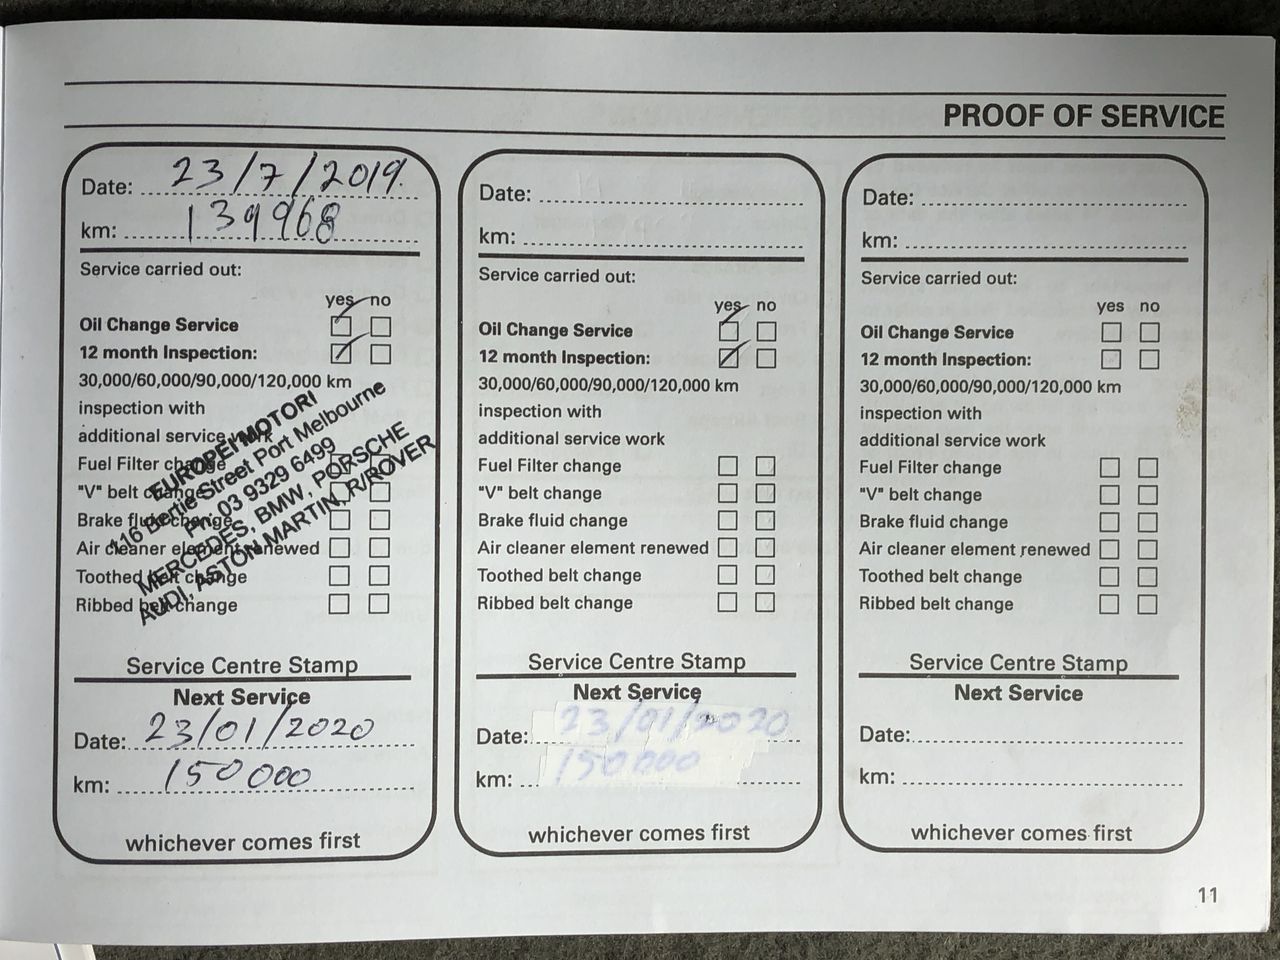 PROOF OF SERVICE
Date: 23/7/2019.
km: 139968
Service carried out:
yes no
Oil Change Service
12 month Inspection:
30,000/60,000/90,000/120,000 km
inspection with
additional service work
Fuel Filter change
"V" belt change
Brake fluid change
Air cleaner element renewed
Toothed belt change
Ribbed belt change
EUROPEI MOTORI
116 Bertie Street Port Melbourne
Ph: 03 9329 6499
MERCEDES, BMW, PORSCHE
AUDI, ASTON MARTIN, R/ROVER
Service Centre Stamp
Next Service
Date: 23/01/2020
km: 150000
whichever comes first
Date:
km:
Service carried out:
yes no
Oil Change Service
12 month Inspection:
30,000/60,000/90,000/120,000 km
inspection with
additional service work
Fuel Filter change
"V" belt change
Brake fluid change
Air cleaner element renewed
Toothed belt change
Ribbed belt change
Service Centre Stamp
Next Service
Date: 23/01/2020
km: 150000
whichever comes first
Date:
km:
Service carried out:
yes no
Oil Change Service
12 month Inspection:
30,000/60,000/90,000/120,000 km
inspection with
additional service work
Fuel Filter change
"V" belt change
Brake fluid change
Air cleaner element renewed
Toothed belt change
Ribbed belt change
Service Centre Stamp
Next Service
Date:
km:
whichever comes first
11